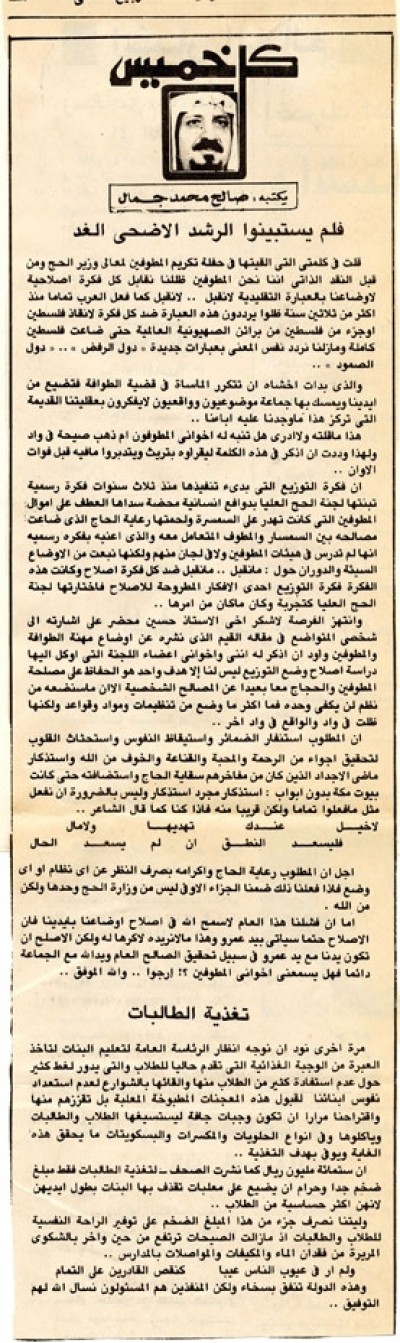 كل خميس
يكتبه : صالح محمد جمال
فلم يستبينوا الرشد الا ضحى الغد
قلت في كلمتي التي القيتها في حفلة تكريم المطوفين لمعالي وزير الحج ومن
قبل النقد الذاتي اننا نحن المطوفين ظللنا نقابل كل فكرة اصلاحية
لاوضاعنا بالعبارة التقليدية لانقبل .. لانقبل كما فعل العرب تماما منذ
اكثر من ثلاثين سنة ظلوا يرددون هذه العبارة ضد كل فكرة لانقاذ فلسطين
اوجزء من فلسطين من براثن الصهيونية العالمية حتى ضاعت فلسطين
كاملة ومازلنا نردد نفس المعنى بعبارات جديدة « دول الرفض » .. « دول
الصمود » ..
والذي بدات اخشاه ان تتكرر الماساة في قضية الطوافة فتضيع من
ايدينا ويمسك بها جماعة موضوعيون وواقعيون لايفكرون بعقليتنا القديمة
التي تركز هذا ماوجدنا عليه اباءنا ..
هذا ماقلته ولاادرى هل تنبه له اخواني المطوفون ام ذهب صيحة في واد
ولهذا وددت ان اذكر في هذه الكلمة ليقراوه بتريث ويتدبروا مافيه قبل فوات
الاوان ..
ان فكرة التوزيع التي بدىء تنفيذها منذ ثلاث سنوات فكرة رسمية
تبنتها لجنة الحج العليا بدوافع انسانية محضة سداها العطف على اموال
المطوفين التي كانت تهدر على السمسرة ولحمتها رعاية الحاج الذي ضاعت
مصالحه بين السمسار والمطوف المتعامل معه والذي اعنيه بفكره رسميه
انها لم تدرس في هيئات المطوفين ولافي لجان منهم ولكنها نبعت من الاوضاع
السيئة والدوران حول : مانقبل .. مانقبل ضد كل فكرة اصلاح وكانت هذه
الفكرة فكرة التوزيع احدى الافكار المطروحة للاصلاح فاختارتها لجنة
الحج العليا كتجربة وكان ماكان من امرها ..
وانتهز الفرصة لاشكر اخي الاستاذ حسين محضر على اشارته الى
شخصي المتواضع في مقاله القيم الذي نشره عن اوضاع مهنة الطوافة
والمطوفين واود ان اذكر له انني واخواني اعضاء اللجنة التي اوكل اليها
دراسة اصلاح وضع التوزيع ليس لنا إلا هدف واحد هو الحفاظ على مصلحة
المطوفين والحجاج معا بعيدا عن المصالح الشخصية الاان ماسنضعه من
نظم لن يكفي وحده فما اكثر ما وضع من تنظيمات ومواد وقواعد ولكنها
ظلت في واد والواقع في واد اخر ..
ان المطلوب استنفار الضمائر واستيقاظ النفوس واستحثاث القلوب
لتحقيق اجواء من الرحمة والمحبة والقناعة والخوف من الله واستذكار
ماضي الاجداد الذين كان من مفاخرهم سقاية الحاج واستضافته حتى كانت
بيوت مكة بدون ابواب : استذكار مجرد استذكار وليس بالضرورة ان نفعل
مثل مافعلوا تماما ولكن قريبا منه فاذا كنا كما قال الشاعر ..
لاخيل عندك تهديها ولامال
فليسعد النطق ان لم يسعد الحال
اجل ان المطلوب رعاية الحاج واكرامه بصرف النظر عن اي نظام او اي
وضع فاذا فعلنا ذلك ضمنا الجزاء الاوفى ليس من وزارة الحج وحدها ولكن
من الله .
اما ان فشلنا هذا العام لاسمح الله في اصلاح اوضاعنا بايدينا فان
الاصلاح حتما سياتي بيد عمرو وهذا مالانريده لاكرها له ولكن الاصلح ان
تكون يدنا مع يد عمرو في سبيل تحقيق الصالح العام ويدالله مع الجماعة
دائما فهل يسمعني اخواني المطوفين ؟! ارجوا .. والله الموفق ..
تغذية الطالبات
مرة اخرى نود ان نوجه انظار الرئاسة العامة لتعليم البنات لتاخذ
العبرة من الوجبة الغذائية التي تقدم حاليا للطلاب والتي يدور لغط كثير
حول عدم استفادة كثير من الطلاب منها والقائها بالشوارع لعدم استعداد
نفوس ابنائنا لقبول هذه المعجنات المطبوخة المعلبة بل تقززهم منها
واقترحنا مرارا ان تكون وجبات جافة ليستسيغها الطلاب والطالبات
وياكلوها وفي انواع الحلويات والمكسرات والبسكويتات ما يحقق هذه
الغاية ويوفي بهدف التغذية ..
ان ستمائة مليون ريال كما نشرت الصحف ــ لتغذية الطالبات فقط مبلغ
ضخم جدا وحرام ان يضيع على معلبات تقذف بها البنات بطول ايديهن
لانهن اكثر حساسية من الطلاب ..
وليتنا نصرف جزء من هذا المبلغ الضخم على توفير الراحة النفسية
للطلاب والطالبات اذ مازالت الصيحات ترتفع من حين واخر بالشكوى
المريرة من فقدان الماء والمكيفات والمواصلات بالمدارس ..
ولم ار في عيوب الناس عيبا كنقص القادرين على التمام
وهذه الدولة تنفق بسخاء ولكن المنفذين هم المسئولون نسال الله لهم
التوفيق ..